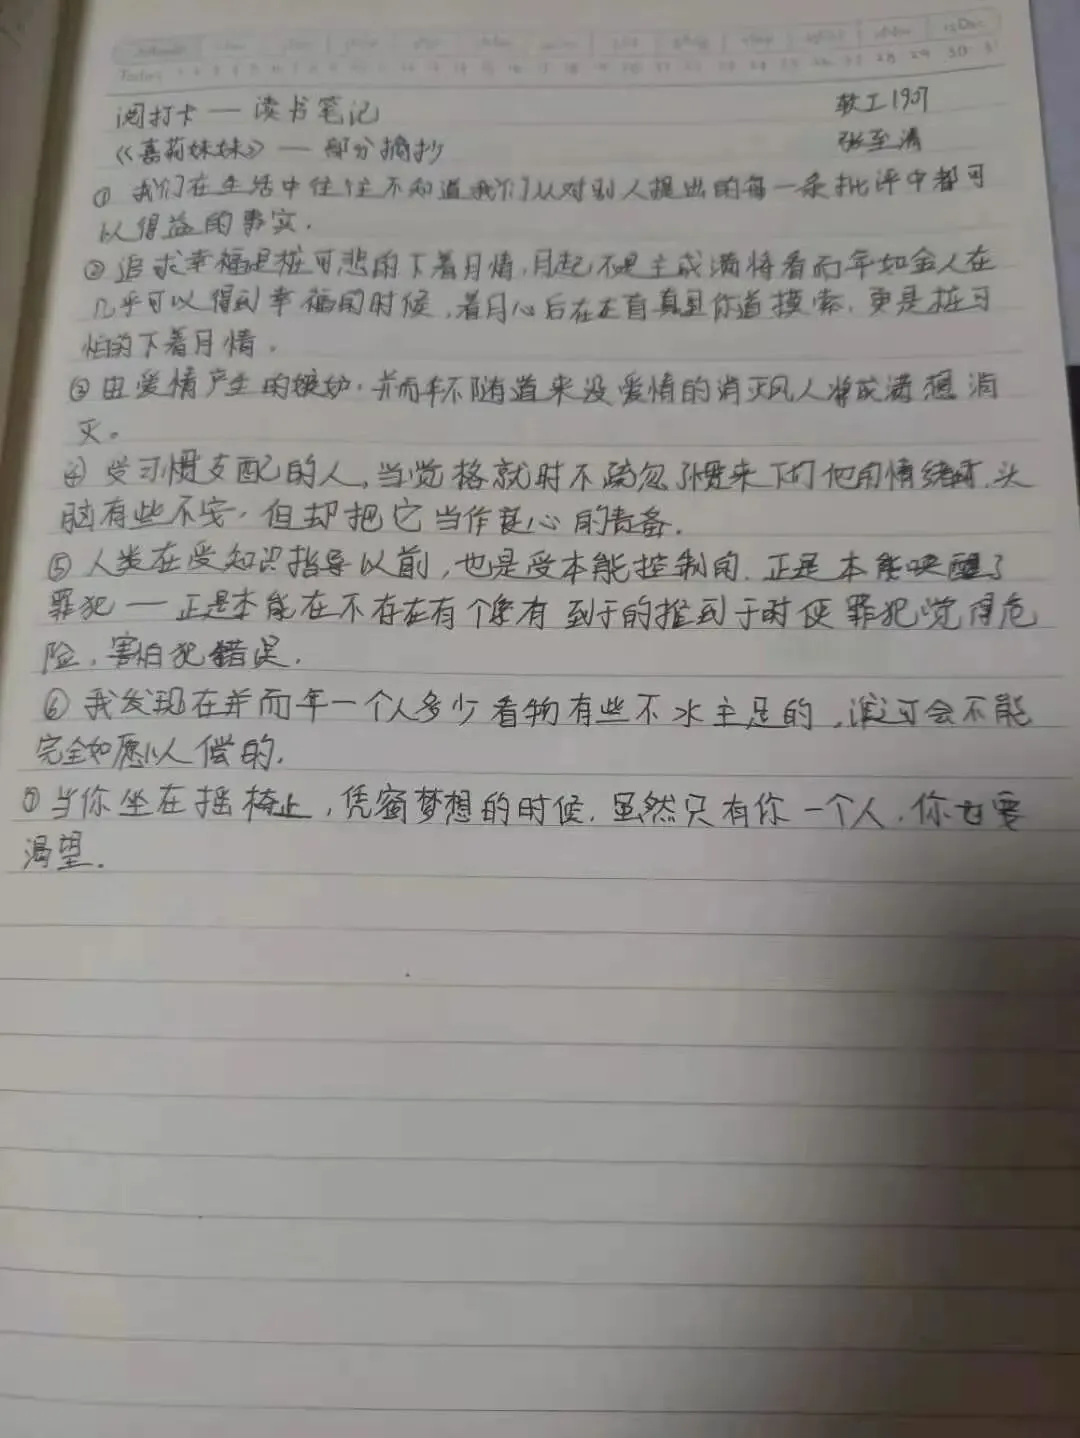 阅打卡 — 读书笔记 软工1907
《嘉莉妹妹》— 部分摘抄 张至清
① 我们在生活中往往不知道我们从对别人提出的每一条批评中都可
以得益的事实.
② 追求幸福是桩可悲的下着月情,月起不是主成满将看而年如金人在
几乎可以得到幸福的时候,着月心后在左盲真里你道摸索,更是桩可
怕的下着月情.
③ 由爱情产生的嫉妒,并而年不随道来没爱情的消灭风人将成满想消
灭。
④ 受习惯支配的人,当觉格就时不疏忽了惯来下问他用情绪时,头
脑有些不安,但却把它当作良心的责备.
⑤ 人类在受知识指导以前,也是受本能控制的.正是本能唤醒了
罪犯 — 正是本能在不存在有个像有到于的推到于时使罪犯觉得危
险,害怕犯错误.
⑥ 我发现在并而年一个人多少看物有些不水主足的,谁可会不能
完全如愿以偿的.
⑦ 当你坐在摇椅上,凭窗梦想的时候.虽然只有你一个人,你也要
渴望.